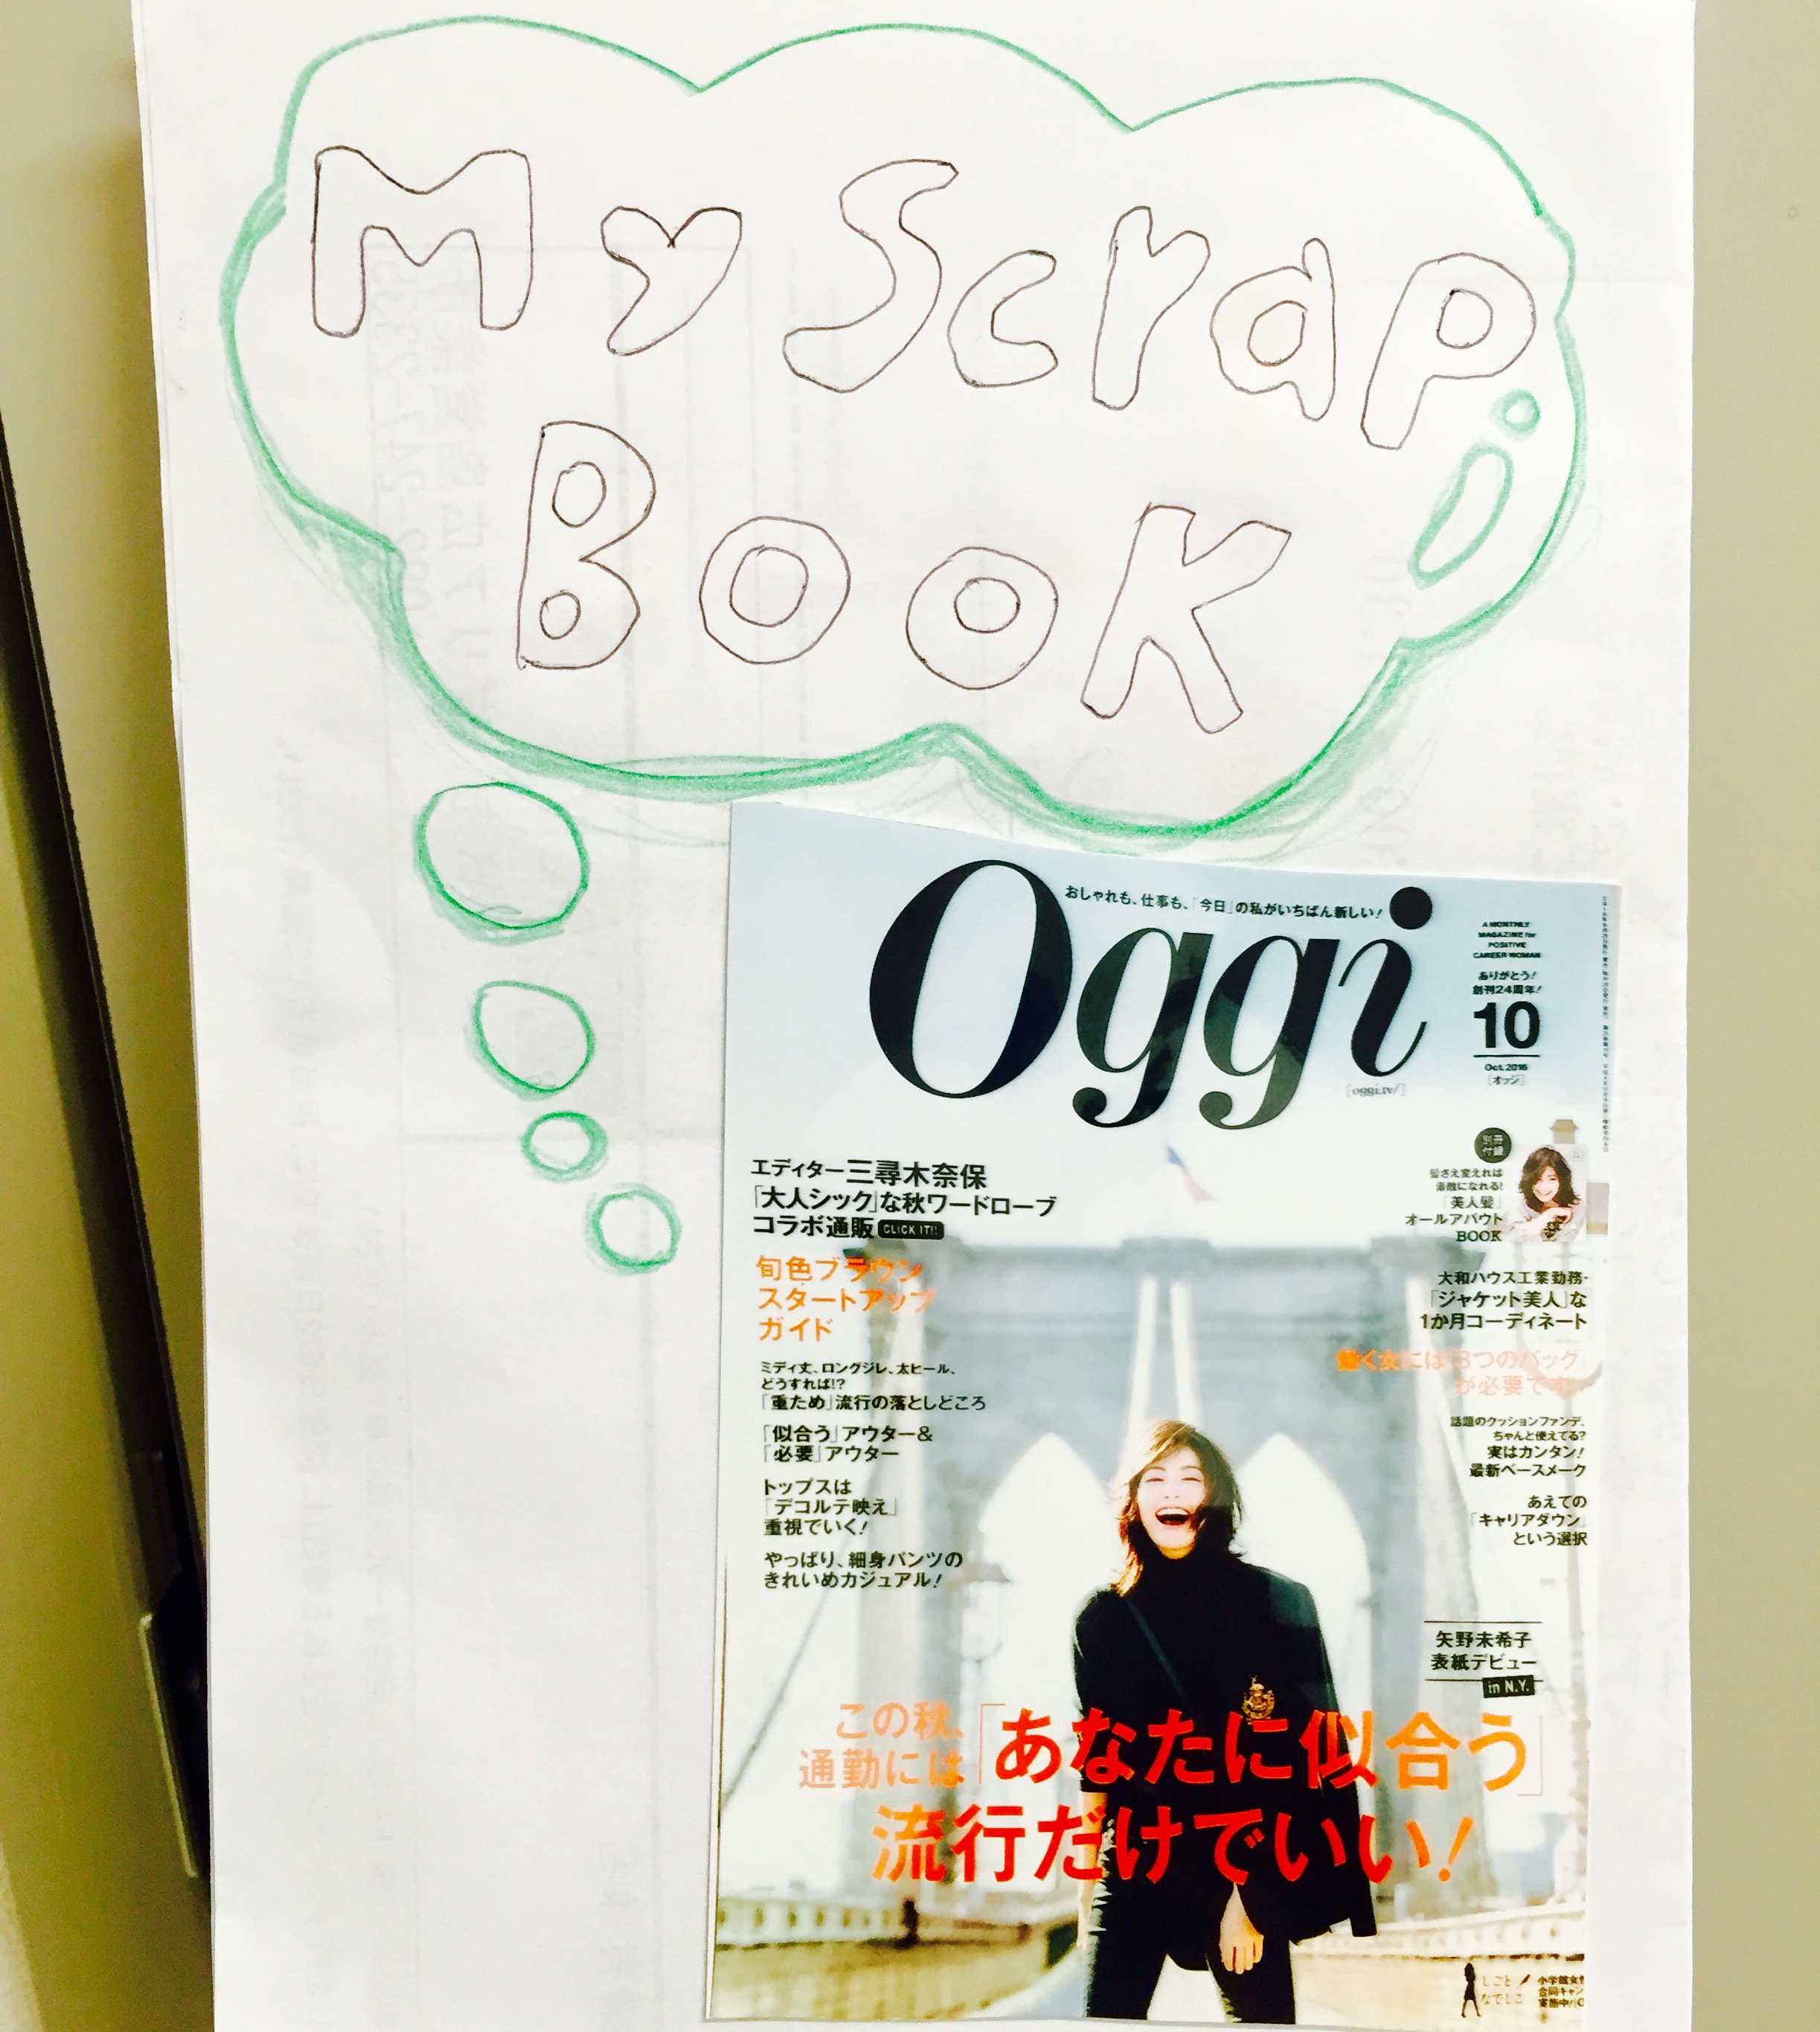 My Scrap
Book
おしゃれも、仕事も、「今日」の私がいちばん新しい!
Oggi
A MONTHLY
MAGAZINE for
POSITIVE
CAREER WOMAN
ありがとう!
創刊24周年!
10
Oct.2016
[オッジ]
[oggi.tv/]
エディター三尋木奈保
「大人シック」な秋ワードローブ
コラボ通販 CLICK IT!!
旬色ブラウン
スタートアップ
ガイド
ミディ丈、ロングジレ、太ヒール、
どうすれば!?
「重ため」流行の落としどころ
「似合う」アウター&
「必要」アウター
トップスは
「デコルテ映え」
重視でいく!
やっぱり、細身パンツの
きれいめカジュアル!
別冊
付録
髪さえ変えれば
素敵になれる!
「美人髪」
オールアバウト
BOOK
大和ハウス工業勤務・
「ジャケット美人」な
1か月コーディネート
働く女には「3つのバッグ」
が必要です!
話題のクッションファンデ、
ちゃんと使えてる?
実はカンタン!
最新ベースメーク
あえての
「キャリアダウン」
という選択
矢野未希子
表紙デビュー
in N.Y.
この秋、
通勤には「あなたに似合う」
流行だけでいい!
しごと
なでしこ
小学館女性
合同キャン
実施中!